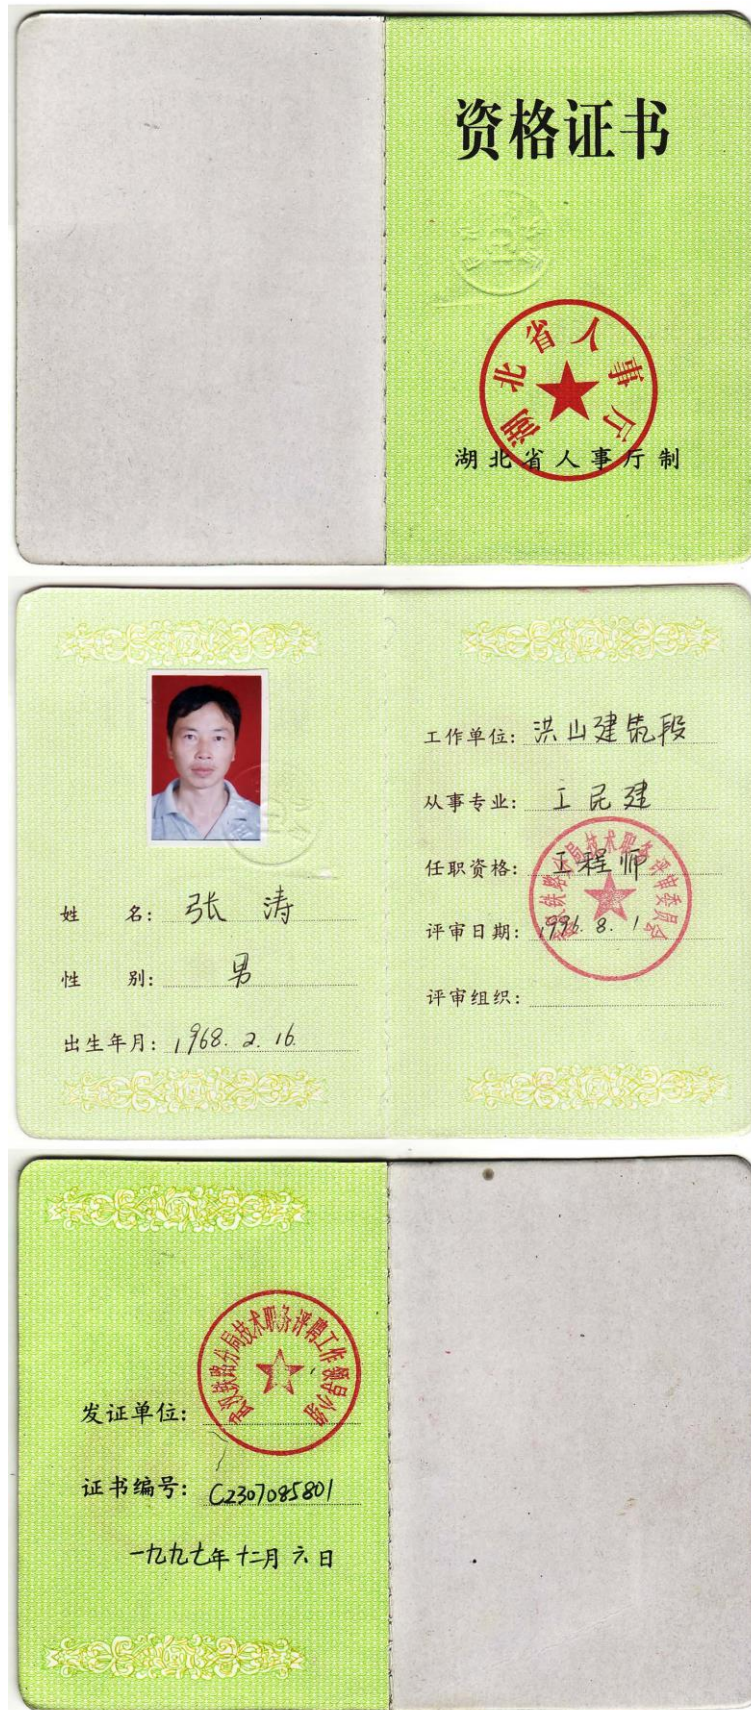 资格证书
湖北省人事厅
湖北省人事厅制
姓 名: 张涛
性 别: 男
出生年月: 1968.2.16.
工作单位: 洪山建筑段
从事专业: 工民建
任职资格: 工程师
评审日期: 1996.8.1
铁路分局技术职务评审委员会
评审组织:
武汉铁路分局技术职务评聘工作领导小组
发证单位:
证书编号: C2307085801
一九九七年十二月六日